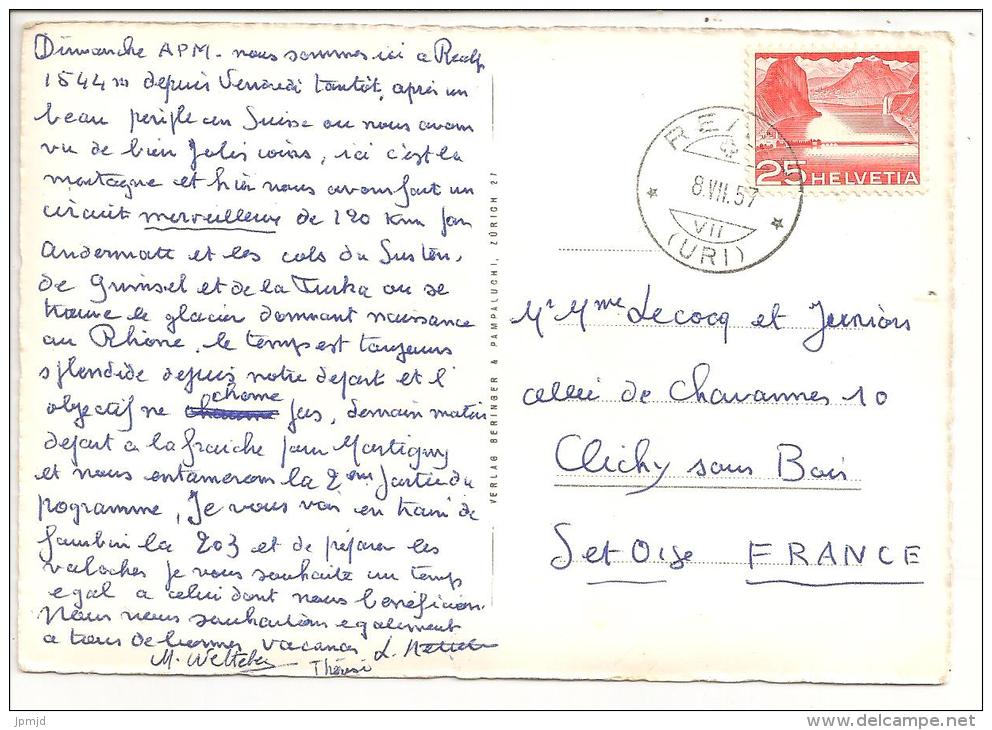 Dimanche APM - nous sommes ici a Realp
1544 m depuis Vendredi tantôt, après un
beau periple en Suisse ou nous avons
vu de bien Jolis coins, ici c'est la
montagne et hier nous avons fait un
circuit merveilleux de 120 Km par
Andermatt et les cols du Susten,
de Grimsel et de la Furka ou se
trouve le glacier donnant naissance
au Rhône, le temps est toujours
splendide depuis notre depart et l'
objectif ne chome pas, demain matin
depart a la fraiche pour Martigny
et nous entamerons la 2eme partie du
programme, Je vous vois en train de
la 203 et de préparer les
valoches je vous souhaite un temps
egal a celui dont nous beneficions.
Nous vous souhaitons egalement
a tous de bonnes vacances L.
M. Thérèse
VERLAG BERINGER & PAMPALUCHI, ZÜRICH 27
25 HELVETIA
8.VII.57
VII
(URI)
Mr Mme Lecocq et Juniors
allée de Chavannes 10
Clichy sous Bois
S et Oise FRANCE
jpmjd
www.delcampe.net